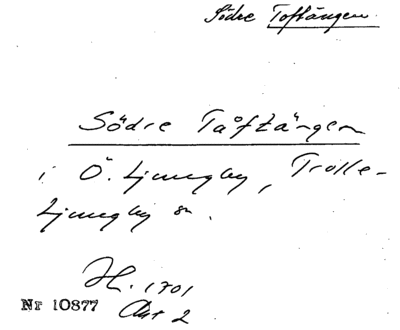 Södre Toftängen.
Södre Tåftängen
i Ö. Ljungby, Trolle-
Ljungby sn.
JH. 1701
Akt 2
Nr 10877